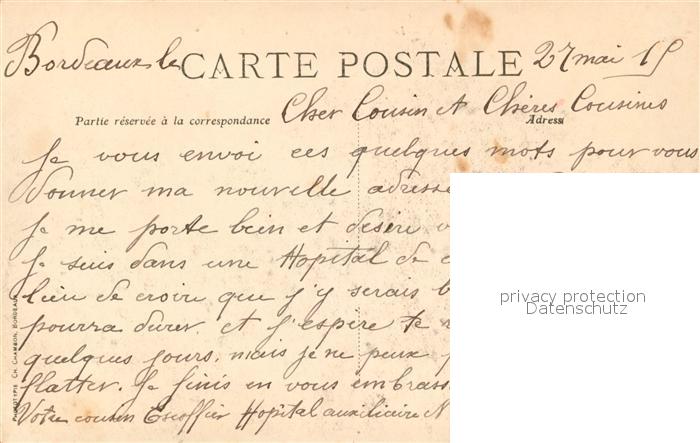 Bordeaux le CARTE POSTALE 27 mai 15
Partie réservée à la correspondance
Adresse
Cher Cousin et Chères Cousines
Je vous envoi ces quelques mots pour vous
donner ma nouvelle adresse
Je me porte bein et desire
Je suis dans une Hopital de
lieu de croire que j'y serais
pourra durer et j'espere te
quelques jours. mais je ne peux
flatter. Je finis en vous embrass
Votre cousin Escoffier Hopital auxiliaire N
privacy protection
Datenschutz
PHOTOTYPIE CH. CHAMBON, BORDEAUX